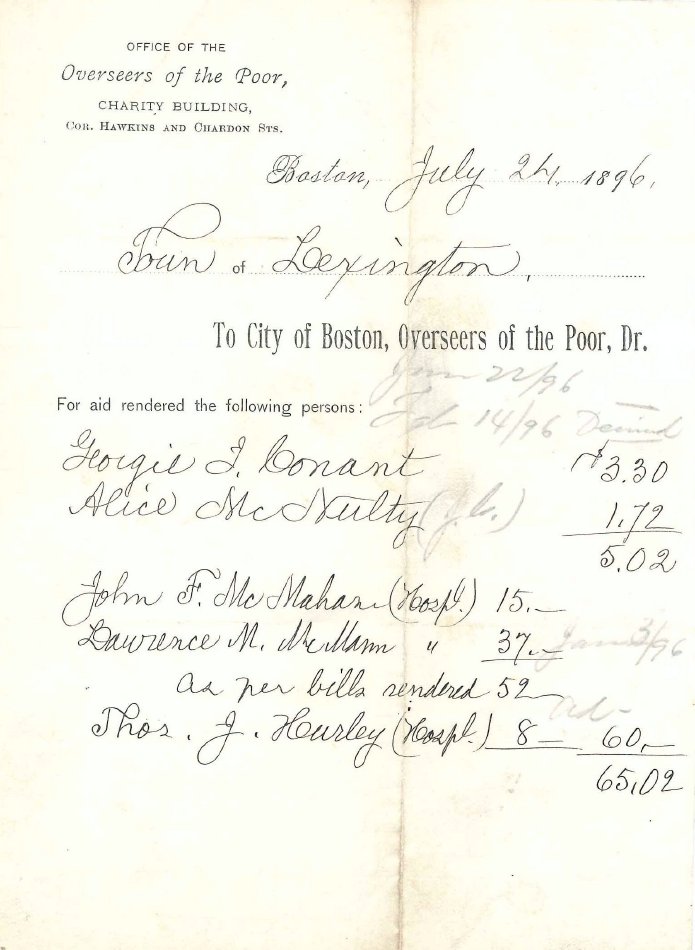 OFFICE OF THE
Overseers of the Poor,
CHARITY BUILDING,
COR. HAWKINS AND CHARDON STS.
Boston, July 24, 1896.
Town of Lexington,
To City of Boston, Overseers of the Poor, Dr.
Jan 22/96
For aid rendered the following persons: Feb 14/96 Denied
Georgie F. Conant $3.30
Alice McNulty 1.72
5.02
John F. McMahan (Hospl.) 15.—
Lawrence M. McMann " 37.— Jan 3/96
as per bills rendered 52—
Thos. J. Hurley (Hospl.) 8— 60.—
65.02